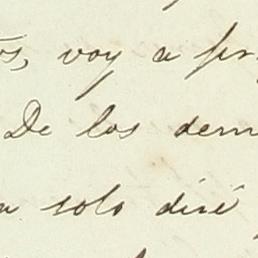 voy a
De los dem
a solo diré